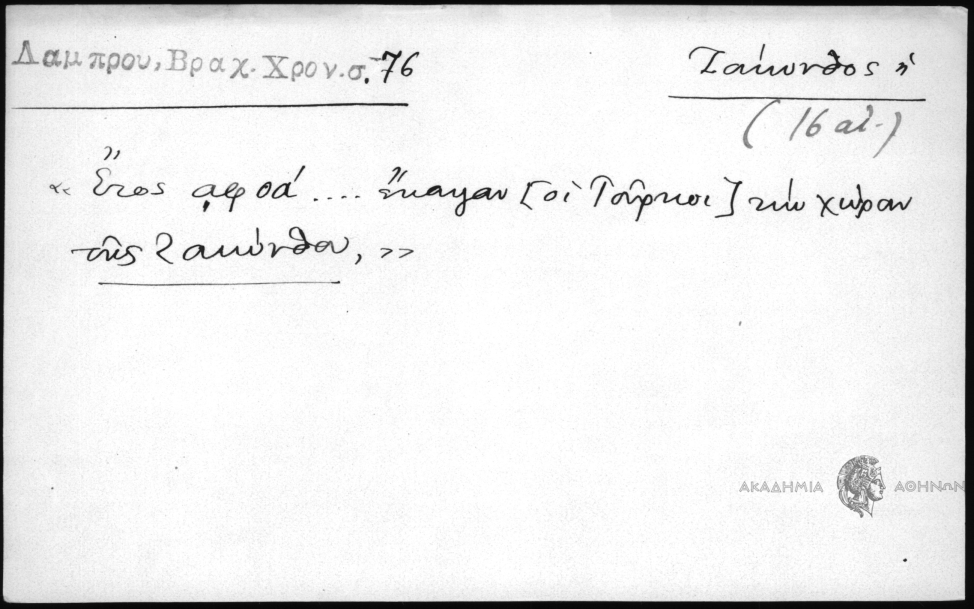 Λαμπρου, Βραχ. Χρον. σ. 76
Ζάκυνθος ἡ
(16 αἰ.)
« Ἔτος ͵αφοά .... ἔκαψαν [οἱ Τοῦρκοι] τὴν χώραν
τῆς Ζακύνθου, »
ΑΚΑΔΗΜΙΑ ΑΘΗΝΩΝ